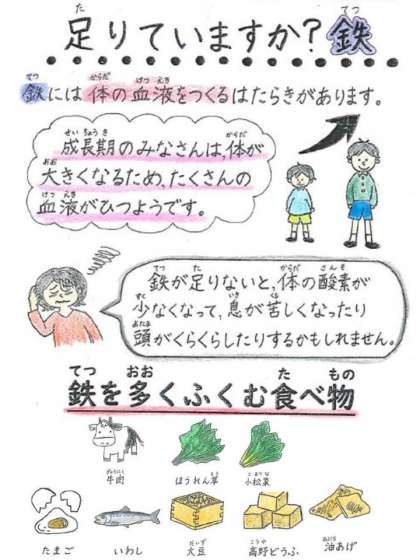 足りていますか?鉄
鉄には体の血液をつくるはたらきがあります。
成長期のみなさんは,体が
大きくなるため,たくさんの
血液がひつようです。
鉄が足りないと,体の酸素が
少なくなって,息が苦しくなったり
頭がくらくらしたりするかもしれません。
鉄を多くふくむ食べ物
牛肉 ほうれん草 小松菜
たまご いわし 大豆 高野どうふ 油あげ